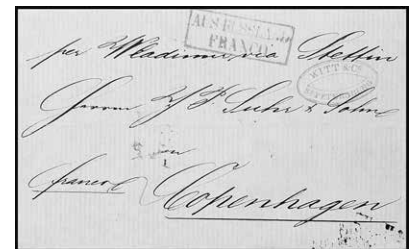 AUS RUSSLAND
FRANCO
per Wladimir, via Stettin
WITT & Co
Herrn J. P. Suhr & Sohne
in
franco
Copenhagen